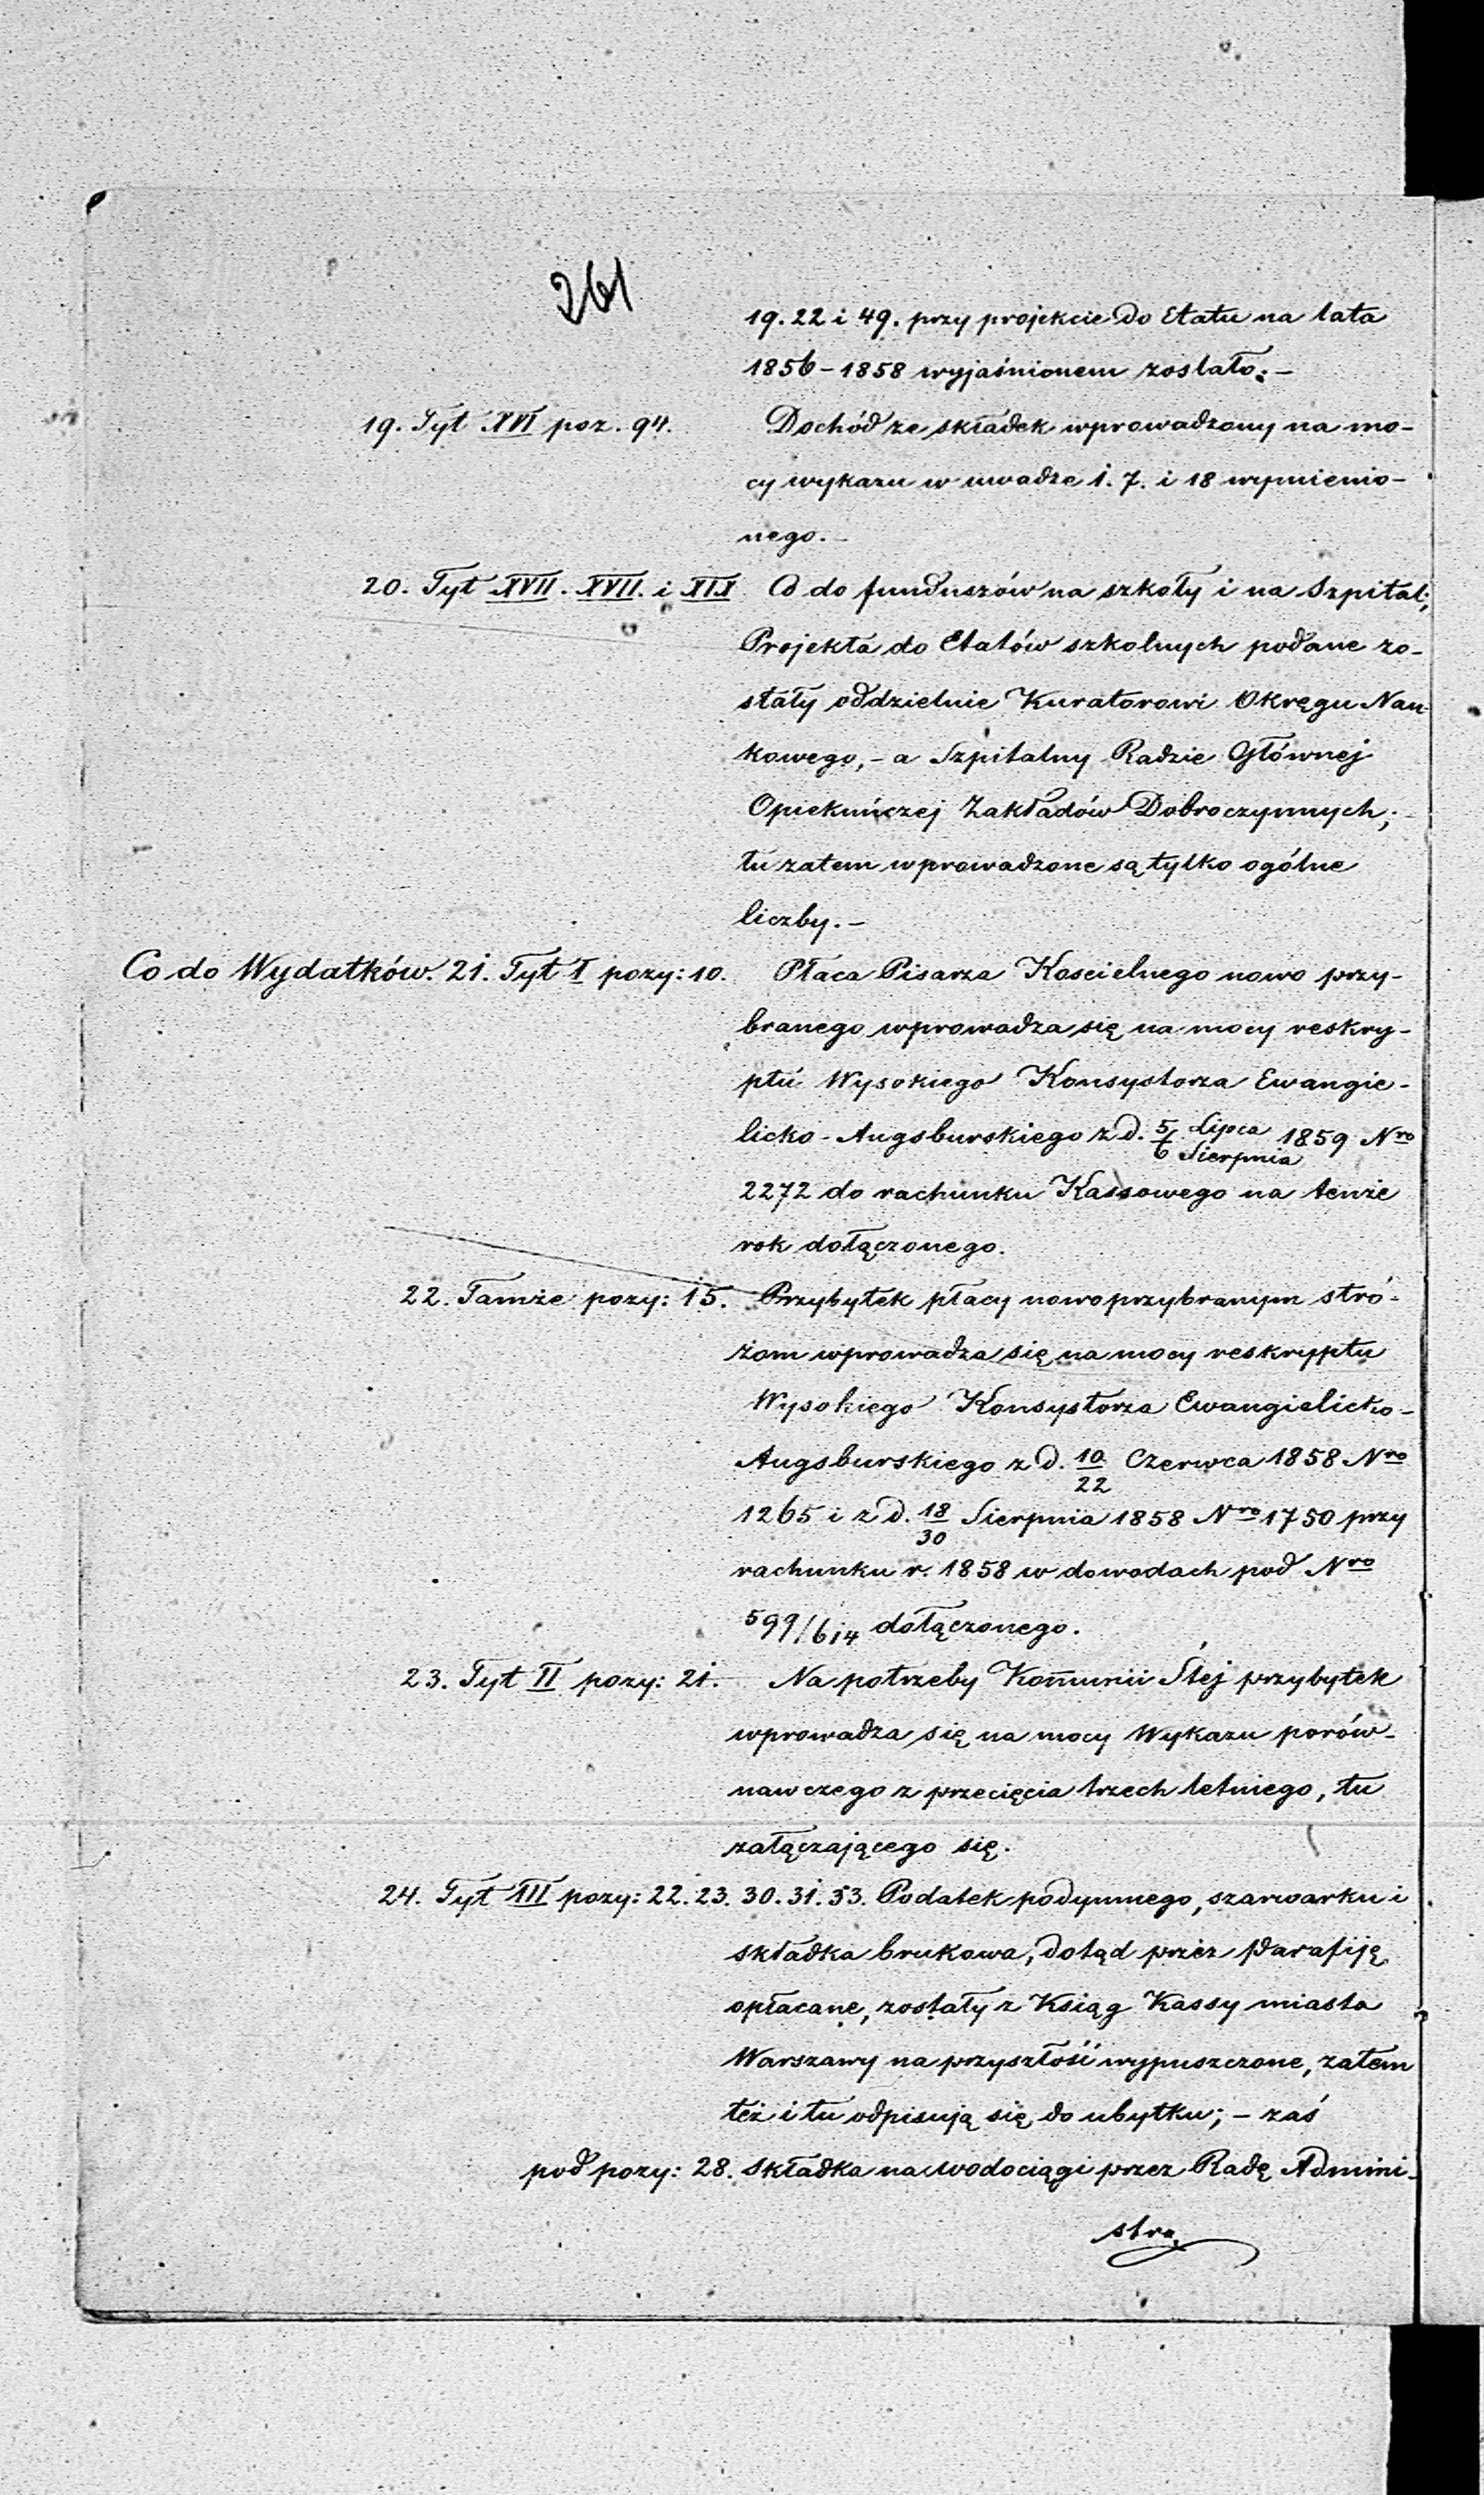 261
19. 22 i 49. przy projekcie do Etatu na lata
1856 – 1858 wyjaśnionem zostało. –
19. Tyt XVI poz. 94. Dochód ze składek wprowadzony na mo-
cy wykazu w uwadze 1. 7. i 18 wymienio-
nego. –
20. Tyt XVII. XVII. i XIX Co do funduszów na szkoły i na Szpital;
Projekta do Etatów szkolnych podane zo-
stały oddzielnie Kuratorowi Okręgu Nau-
kowego, – a Szpitalny Radzie Głównej
Opiekuńczej Zakładów Dobroczynnych;
tu zatem wprowadzone są tylko ogólne
liczby. –
Co do Wydatków. 21. Tyt I pozy: 10. Płaca Pisarza Koscielnego nowo przy-
branego wprowadza się na mocy reskry-
ptu Wysokiego Konsystorza Ewangie-
licko - Augsburskiego z d. 5/6 Lipca/Sierpnia 1859 Nro
2272 do rachunku Kassowego na tenże
rok dołączonego.
22. Tamże pozy: 15. Przybytek płacy nowoprzybranym stró-
żom wprowadza się na mocy reskryptu
Wysokiego Konsystorza Ewangielicko-
Augsburskiego z d. 10/22 Czerwca 1858 Nro
1265 i z d. 18/30 Sierpnia 1858 Nro 1750 przy
rachunku r. 1858 w dowodach pod Nro
599/614 dołączonego.
23. Tyt II pozy: 21. Na potrzeby Kom̄unii Stej przybytek
wprowadza się na mocy Wykazu porów-
nawczego z przecięcia trzech letniego, tu
załączającego się.
24. Tyt III pozy: 22. 23. 30. 31. 33. Podatek podymnego, szarwarku i
składka brukowa, dotąd przez Parafiję
opłacane, zostały z Ksiąg Kassy miasta
Warszawy na przyszłość wypuszczone, zatem
też i tu odpisują się do ubytku; – zaś
pod pozy: 28. Składka na wodociągi przez Radę Admini-
stra